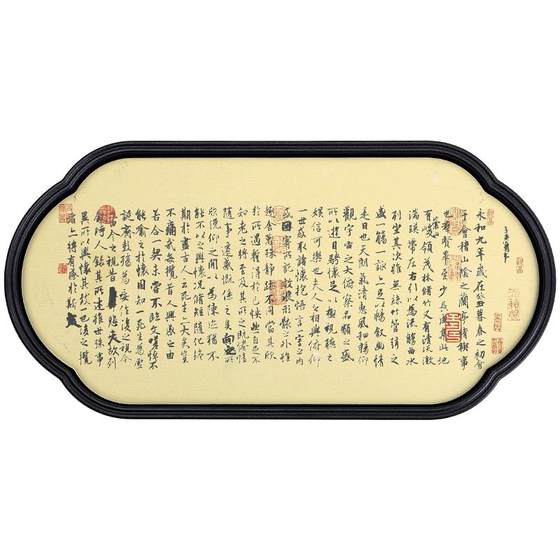 永和九年歲在癸丑暮春之初會
于會稽山陰之蘭亭脩稧事
也群賢畢至少長咸集此地
有崇山峻領茂林脩竹又有清流激
湍暎帶左右引以為流觴曲水
列坐其次雖無絲竹管弦之
盛一觴一詠亦足以暢敘幽情
是日也天朗氣清惠風和暢仰
觀宇宙之大俯察品類之盛
所以遊目騁懷足以極視聽之
娛信可樂也夫人之相與俯仰
一世或取諸懷抱悟言一室之內
或因寄所託放浪形骸之外雖
趣舍萬殊靜躁不同當其欣
於所遇暫得於己快然自足不
知老之將至及其所之既惓情
隨事遷感慨係之矣向之所
欣俛仰之閒以為陳迹猶不
能不以之興懷況脩短隨化終
期於盡古人云死生亦大矣豈
不痛哉每攬昔人興感之由
若合一契未嘗不臨文嗟悼不
能喻之於懷固知一死生為虛
誕齊彭殤為妄作後之視今
亦由今之視昔悲夫故列
敘時人錄其所述雖世殊事
異所以興懷其致一也後之攬
者亦將有感於斯文